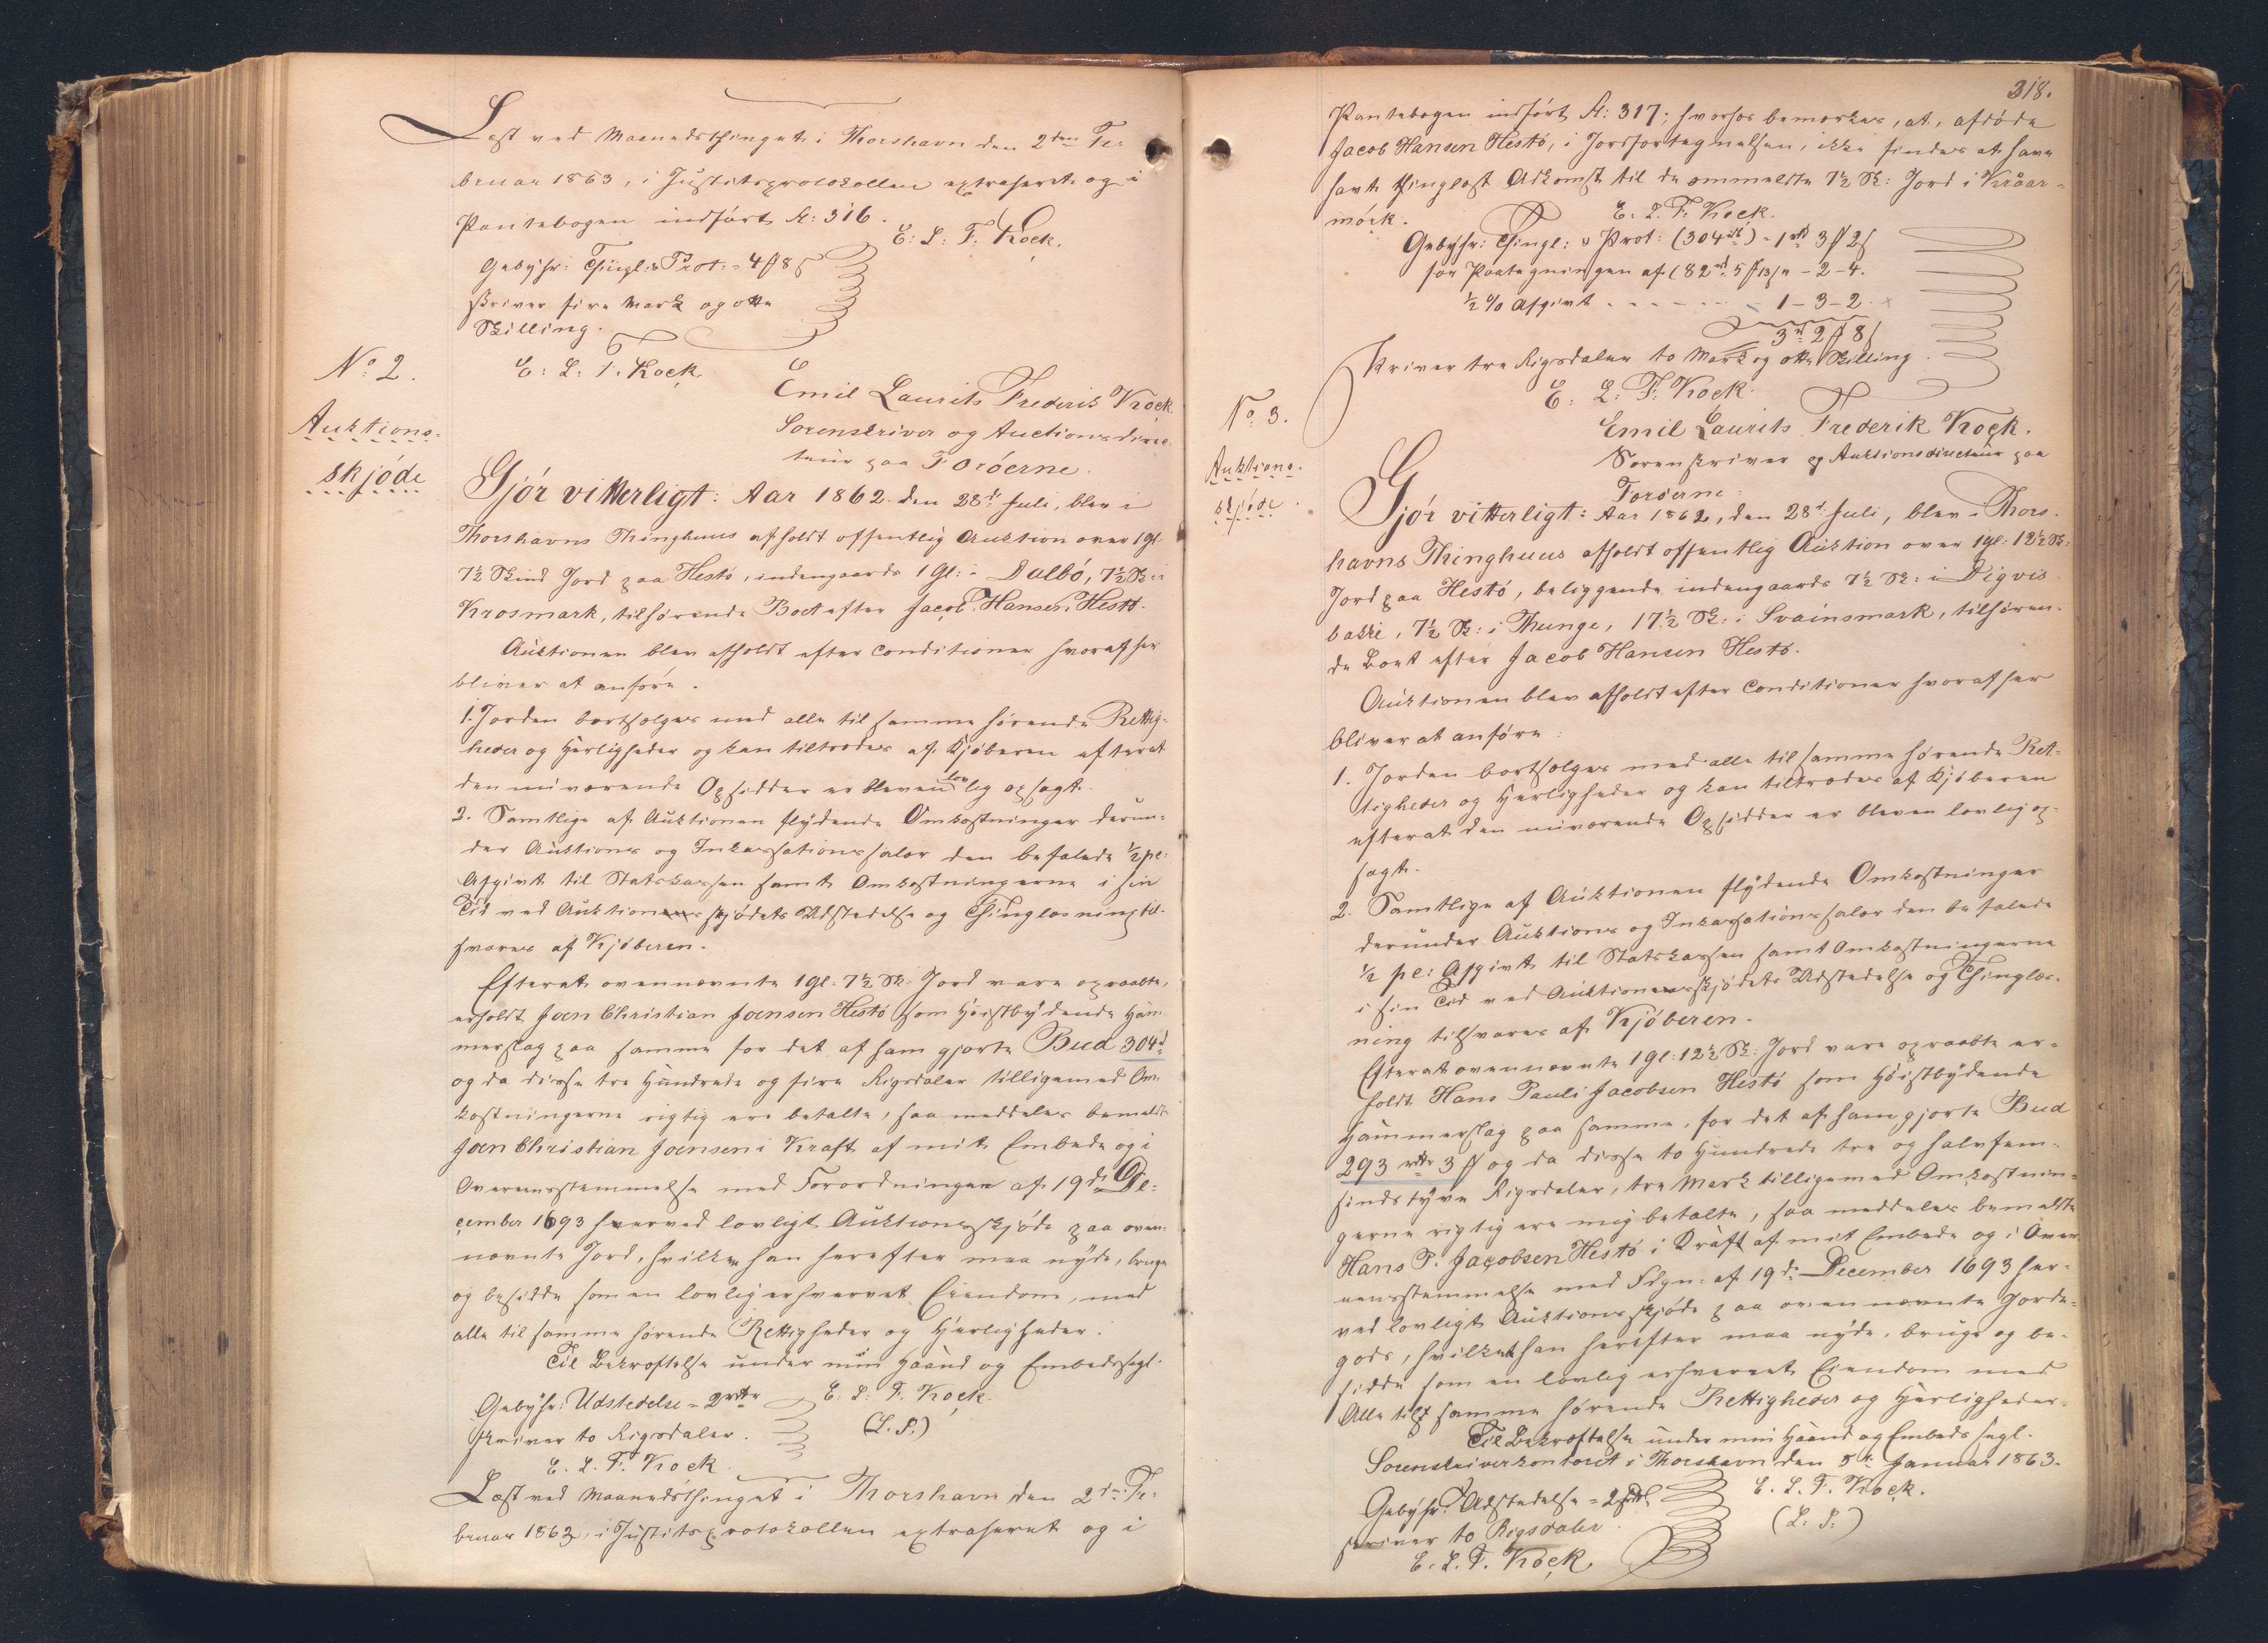 Læst ved Maanedsthinget i Thorshavn den 2den Fe-
bruar 1863, i Justitsprotokollen extraheret og i
Pantebogen indført A: 316.
E: L: F: Kock.
Gebyhr: Thingl: & Prot: = 4 ß 8 s
skriver fire Mark og otte
Skilling.
E: L: F. Kock
No 2.
Auktions-
skjöde
Emil Laurits Frederik Kock
Sorenskriver og Auctionsdirec-
teur paa Foröerne.
Gjör vitterligt: Aar 1862 den 28de Juli, blev i
Thorshavns Thinghuus afholdt offentlig Auktion over 1 gl.
7½ Skind Jord paa Hestö, indengaards 1 Gl: i Dalbö, 7½ Sk: i
Krosmark, tilhörende Boet efter Jacob Hansen Hestö.
Auktionen blev afholdt efter Conditioner hvoraf her
bliver at anföre.
1. Jorden bortsælges med alle til samme hörende Rettig-
heder og Herligheder og kan tiltrædes af Kjöberen efterat
den nuværende Opsidder er bleven lovlig opsagt.
2. Samtlige af Auktionen flydende Omkostninger derun-
der Auktions og Inkassationssalær den befalede ½ pC:
Afgivt til Statskassen samt Omkostningerne i sin
Tid ved Auktionsskjödets Udstedelse og Thinglæsning til-
svares af Kjöberen.
Efterat ovennævnte 1 gl. 7½ Sk: Jord vare opraabte,
erholdt Joen Christian Joensen Hestö som Höistbydende Ham-
merslag paa samme for det af ham gjorte Bud 304 rd
og da disse tre Hundrede og fire Rigsdaler tilligemed Om-
kostningerne rigtig ere betalte, saa meddeles bemeldte
Joen Christian Joensen i Kraft af mit Embede og i
Overeensstemmelse med Forordningen af 19de De-
cember 1693 herved lovligt Auktionsskjöde paa oven-
nævnte Jord, hvilken han herefter maa nyde, bruge
og besidde som en lovlig erhvervet Eiendom, med
alle til samme hörende Rettigheder og Herligheder.
Til Bekræftelse under min Haand og Embedssegl.
Gebyhr: Udstedelse = 2 rdr
E. L. F. Kock.
skriver to Rigsdaler.
(L. S.)
E. L. F. Kock.
Læst ved Maanedsthinget i Thorshavn den 2den Fe-
bruar 1863, i Justitsprotokollen extraheret og i
318.
Pantebogen indfört A: 317; hvorhos bemærkes, at, afdöde
Jacob Hansen Hestö, i Jordfortegnelsen, ikke findes at have
havt thinglæst Adkomst til de ommeldte 7½ Sk: Jord i Kråar-
mörk.
E. L. F. Kock.
Gebyhr: Thingl: & Prot: (304 rd) - 1 rd 3 ß 2 s
for Paategningen af (82 rd 5 ß 13 s) " - 2 - 4.
½ % Afgivt - - - - 1 - 3 - 2.
3 rd 2 ß 8 s
Skriver tre Rigsdaler to Mark og otte Skilling.
E. L. F. Kock.
No 3.
Auktions-
skjöde.
Emil Laurits Frederik Kock.
Sorenskriver og Auktionsdirecteur paa
Foröerne:
Gjör vitterligt: Aar 1862, den 28de Juli, blev i Thors-
havns Thinghuus afholdt offentlig Auktion over 1 gl: 12½ Sk:
Jord paa Hestö, beliggende indengaards 7½ Sk: i Digvis-
bakke, 7½ Sk: i Thunge, 17½ Sk: i Svainsmark, tilhören-
de Boet efter Jacob Hansen Hestö.
Auktionen blev afholdt efter Conditioner hvoraf her
bliver at anföre:
1. Jorden bortsælges med alle til samme hörende Ret-
tigheder og Herligheder og kan tiltrædes af Kjöberen
efterat den nuværende Opsidder er bleven lovlig op-
sagt.
2. Samtlige af Auktionen flydende Omkostninger
derunder Auktions og Inkassationssalær den befalede
½ pC: Afgivt til Statskassen samt Omkostningerne
i sin Tid ved Auktionsskjödets Udstedelse og Thinglæs-
ning tilsvares af Kjöberen.
Efterat ovennævnte 1 gl: 12½ Sk: Jord vare opraabte er-
holdt Hans Pauli Jacobsen Hestö som Höistbydende
Hammerslag paa samme, for det af ham gjorte Bud
293 rdr 3 ß og da disse to Hundrede tre og halvfem-
sindstyve Rigsdaler, tre Mark tilligemed Omkostnin-
gerne rigtig ere mig betalte, saa meddeles bemeldte
Hans P. Jacobsen Hestö i Kraft af mit Embede og i Over-
eensstemmelse med Fdgn: af 19de December 1693 her-
ved lovligt Auktionsskjöde paa ovennævnte Jorde-
gods, hvilket han herefter maa nyde, bruge og be-
sidde som en lovlig erhvervet Eiendom med
Alle til samme hörende Rettigheder og Herligheder.
Til Bekræftelse under min Haand og Embeds segl.
Sorenskriverkontoret i Thorshavn den 5te Januar 1863.
Gebyhr: Udstedelse = 2 rdl
E. L. F. Kock.
skriver to Rigsdaler.
(L: S:)
E. L. F. Kock.